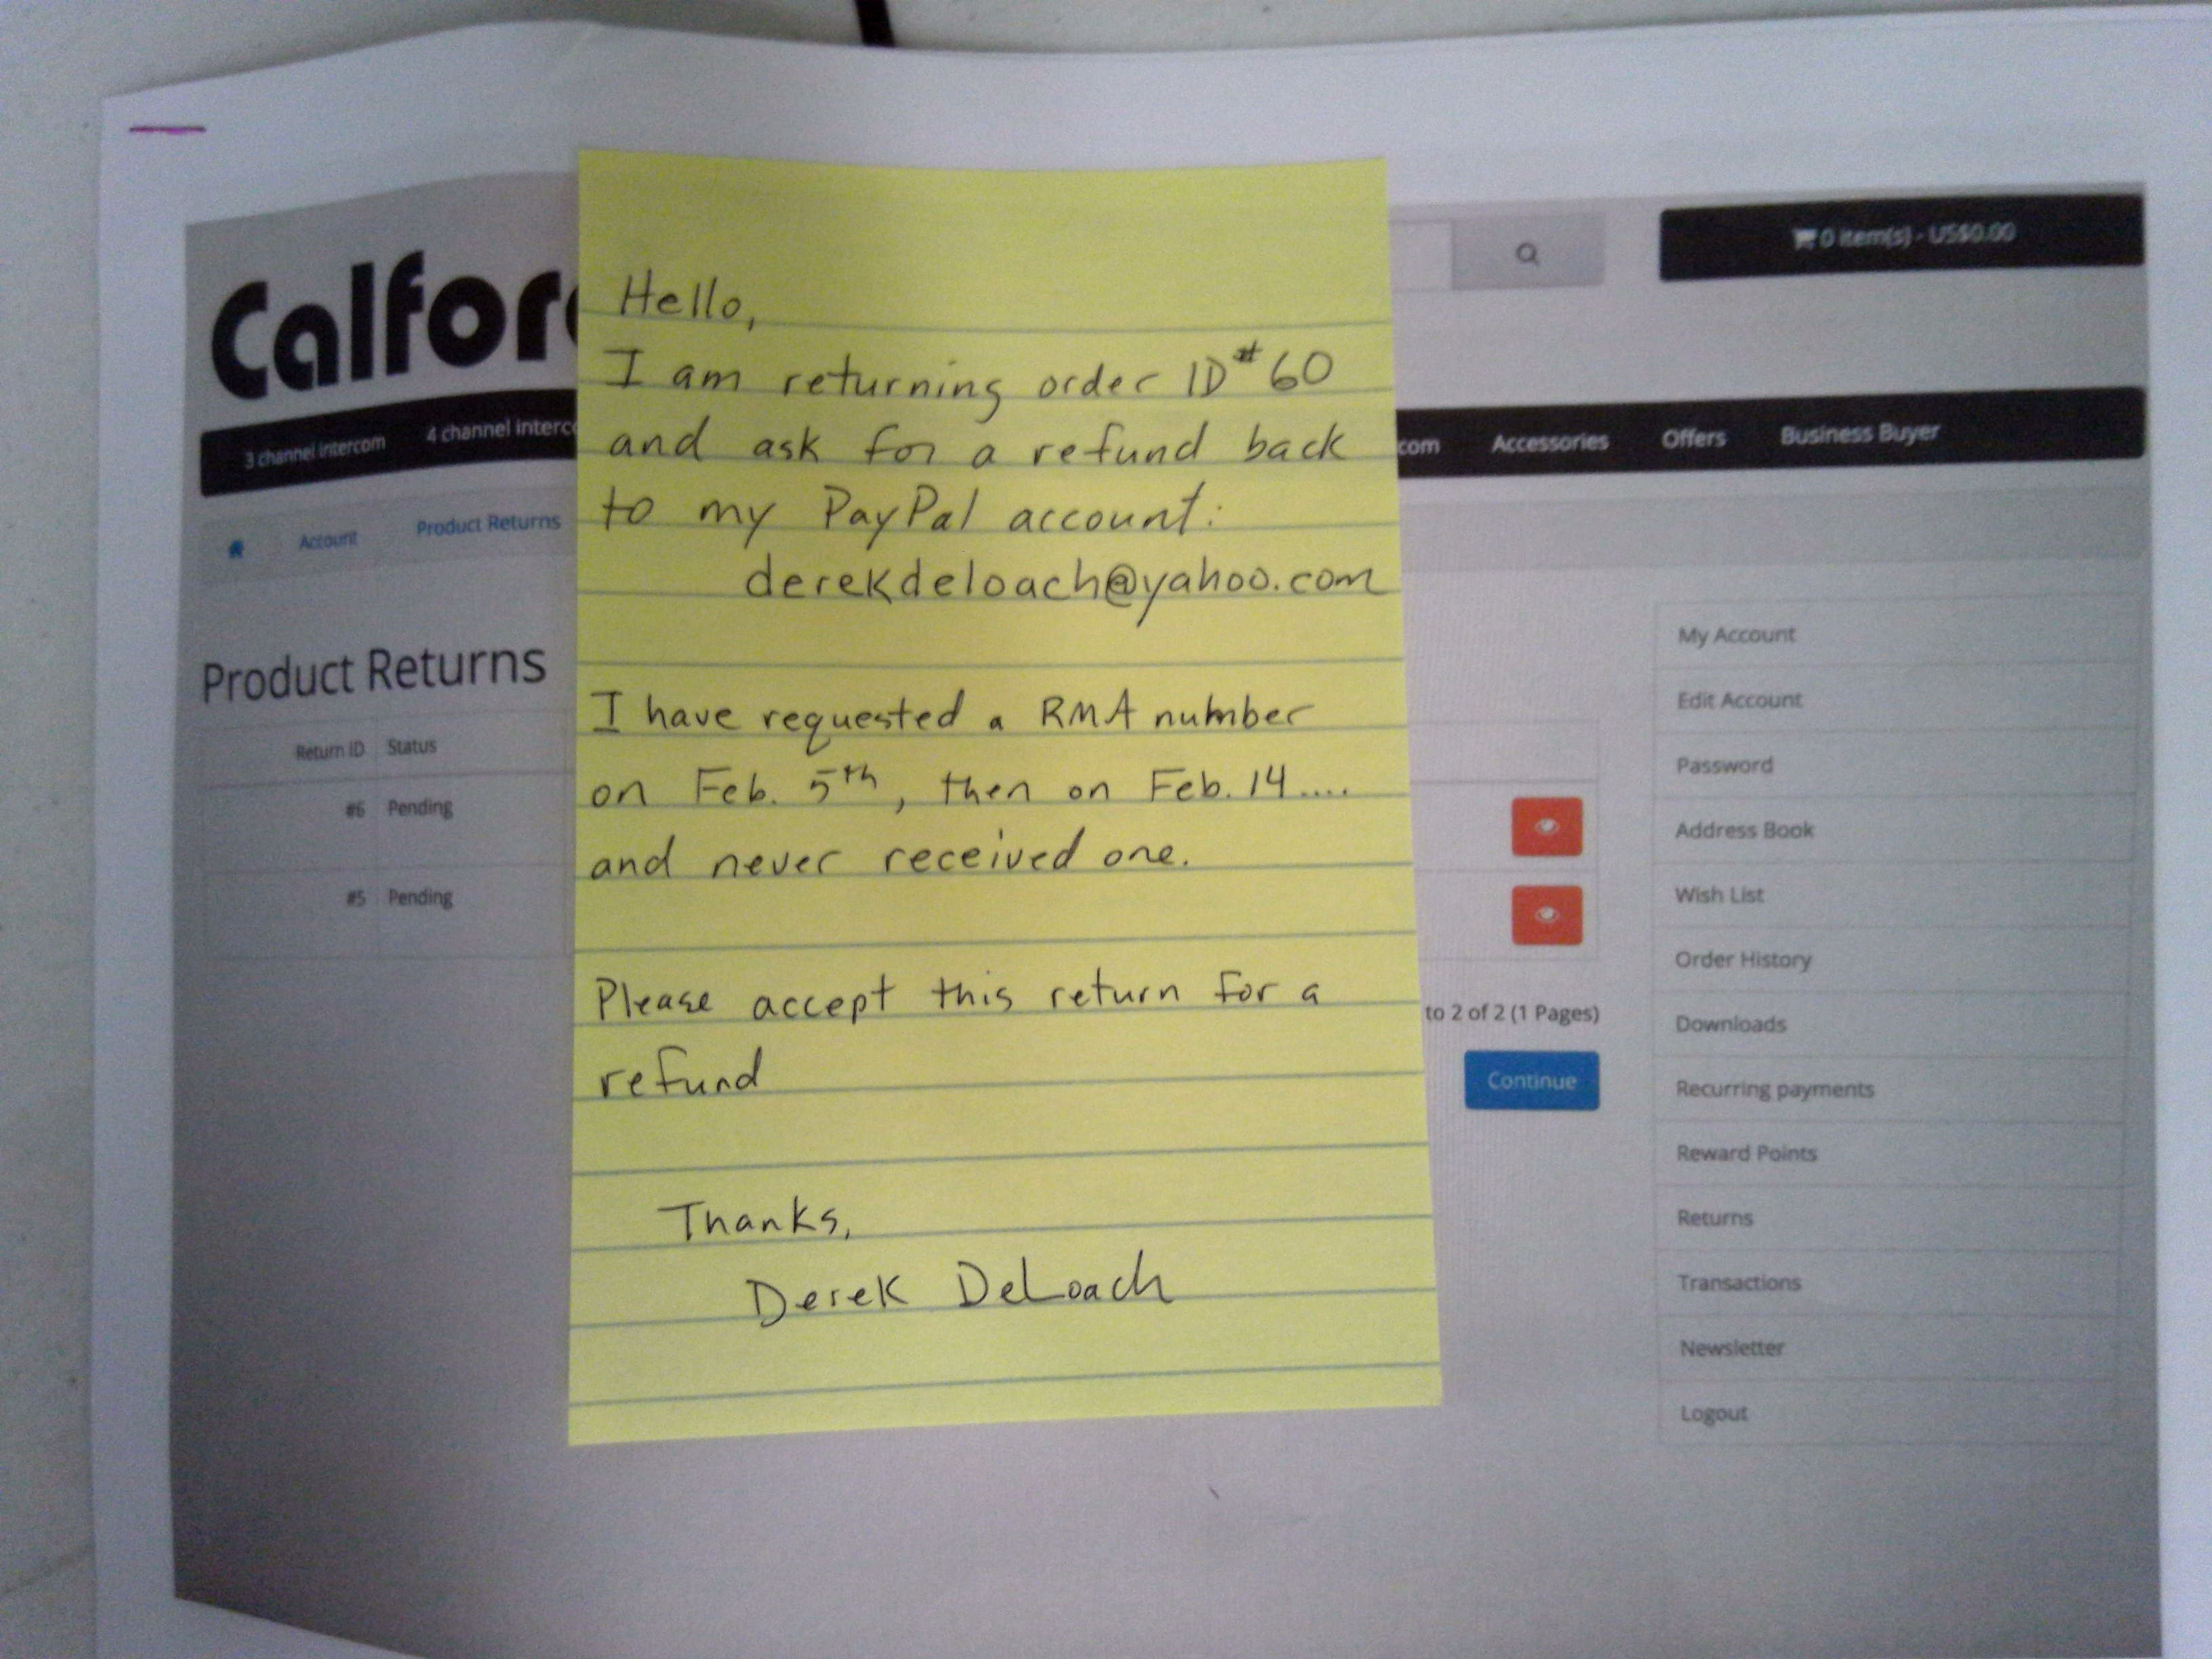 0 item(s) - US$0.00
3 channel intercom 4 channel Accessories Offers Business Buyer
Account Product Returns
Product Returns
Return ID Status
#6 Pending
#5 Pending
to 2 of 2 (1 Pages)
Continue
Hello,
I am returning order ID #60
and ask for a refund back
to my PayPal account:
derekdeloach@yahoo.com
I have requested a RMA number
on Feb. 5th, then on Feb. 14....
and never received one.
Please accept this return for a
refund
Thanks,
Derek DeLoach
My Account
Edit Account
Password
Address Book
Wish List
Order History
Downloads
Recurring payments
Reward Points
Returns
Transactions
Newsletter
Logout